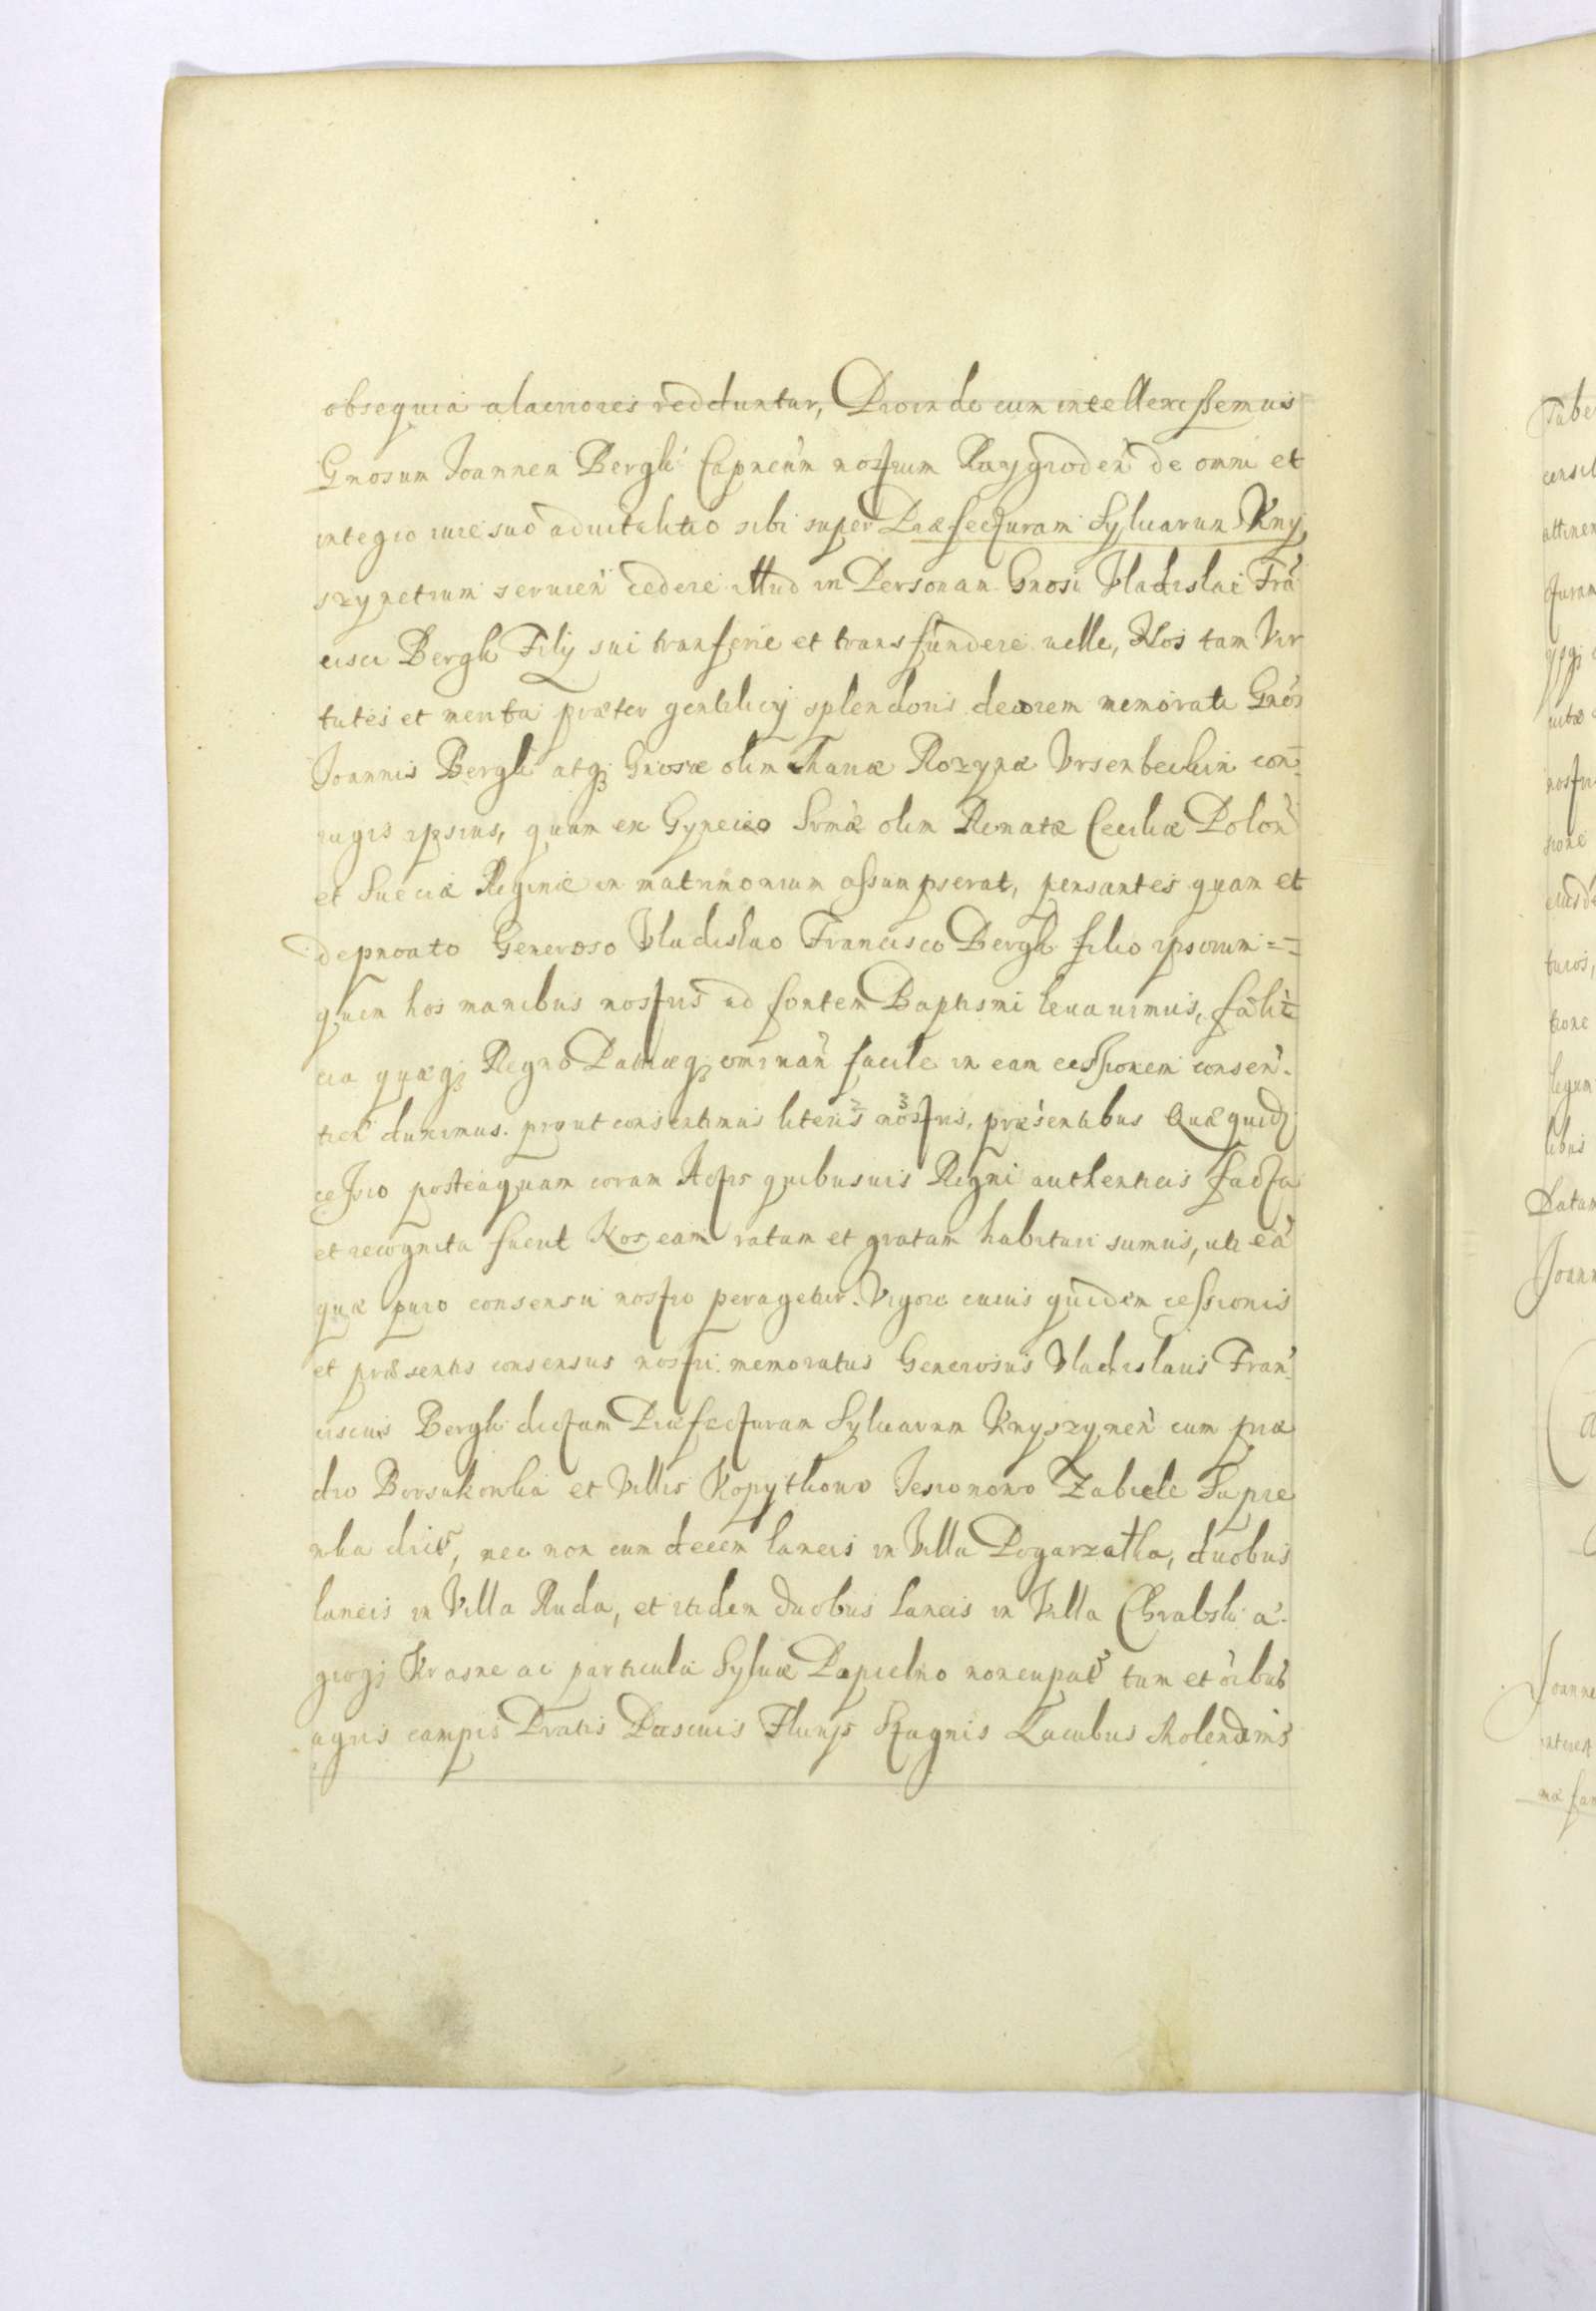 obsequia alacriores redduntur, Proinde cum intellexissemus
Gnosum Joannem Bergk Capneum nostrum Raygroden de omni et
integro iure suo aduitalitio sibi super Præfecturam Syluarum Kny
szynetrum seruien cedere illud in Personam Gnosi Vladislai Frã
cisci Bergk Filij sui transferre et transfundere uelle, Nos tam Vir
tutes et merita præter gentilicij splendoris decorem memorati Gnos
Joannis Bergk atq; Gnosæ olim Mariæ Rozynæ Vrsenbeckin con=
iugis ipsius, quam ex Gyneceo Srmæ olim Renatæ Ceciliæ Polon
et Sueciæ Reginæ in matrimonium assumpserat, pensantes quam et
de pnoato Generoso Vladislao Francisco Bergk filio ipsorum =
quem hos manibus nostris ad fontem Baptismi leuauimus, fæli=
cia quæq; Regno Patriæq; ominan facile in eam cessionem consen.
tien duximus. prout consentimus literis nostris, præsentibus Quæ quid;
cessio posteaquam coram Actis quibusuis Regni authenticis facta
et recognita fuerit Nos eam ratam et gratam habituri sumus, uti eã
quæ puro consensu nostro peragetur. Vigore cuius quidem cessionis
et præsentis consensus nostri memoratus Generosus Vladislaus Fran
ciscus Bergk dictam Præfecturam Syluarum Knyszynen cum præ
dio Borsukowka et Villis Kopythowo Jesionowo Zabiele Supre
nka dict, nec non cum decem laneis in Villa Pogarzatka, duobus
laneis in Villa Ruda, et itidem duobus Laneis in Villa Chrabski a.
groq; Krasne ac particula Syluæ Papielno noncupat tum et oibus
agris campis Pratis Pascuis Fluuijs Stagnis Lacubus Molendinis